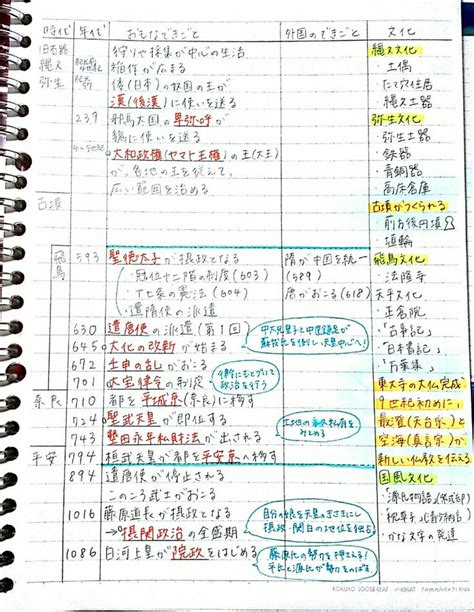 時代 年代 おもなできごと 外国のできごと 文化
旧石器 狩りや採集が中心の生活 縄文文化
縄文 稲作が広まる ・土偶
弥生 倭(日本)の奴国の王が ・たて穴住居
漢(後漢)に使いを送る ・縄文土器
239 邪馬台国の卑弥呼が 弥生文化
魏に使いを送る ・弥生土器
大和政権(ヤマト王権)の王(大王) ・鉄器
が、各地の王を従えて、 ・青銅器
広い範囲を治める。 ・高床倉庫
古墳 古墳がつくられる
・前方後円墳
・埴輪
飛鳥 593 聖徳太子が摂政となる 隋が中国を統一 飛鳥文化
・冠位十二階の制度(603) (589) ・法隆寺
・十七条の憲法(604) 唐がおこる(618) 天平文化
・遣隋使の派遣 ・正倉院
630 遣唐使の派遣(第1回) 中大兄皇子と中臣鎌足が ・「古事記」
645 大化の改新が始まる 蘇我氏を倒し、天皇中心へ! ・「日本書記」
672 壬申の乱がおこる ・「万葉集」
701 大宝律令の制定 律令にもとづいて政治を行う 東大寺の大仏完成
奈良 710 都を平城京(奈良)に移す 9世紀初めに、
724 聖武天皇が即位する 最澄(天台宗)と
743 墾田永年私財法が出される 土地の永久私有をみとめる 空海(真言宗)が
平安 794 桓武天皇が都を平安京へ移す 新しい仏教を伝える
894 遣唐使が停止される 国風文化
このころ武士がおこる ・「源氏物語」(紫式部)
1016 藤原道長が摂政となる 自分の娘を天皇のきさきにし ・「枕草子」(清少納言)
→摂関政治の全盛期 摂政・関白の地位を独占 ・かな文字の発達
1086 白河上皇が院政をはじめる 藤原氏の勢力を押さえる!
源氏と平氏が勢力をのばす
KOKUYO LOOSE-LEAF